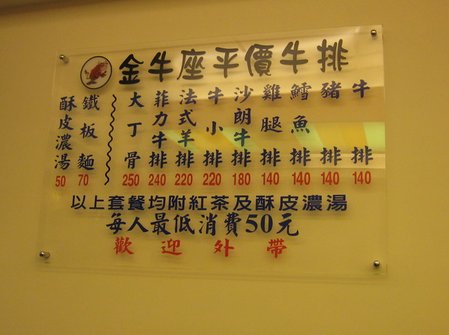 金牛座平價牛排
酥皮濃湯 50
鐵板麵 70
大丁骨 250
菲力牛排 240
法式羊排 220
牛小排 220
沙朗牛排 180
雞腿排 140
鱈魚排 140
豬排 140
牛排 140
以上套餐均附紅茶及酥皮濃湯
每人最低消費50元
歡迎外帶